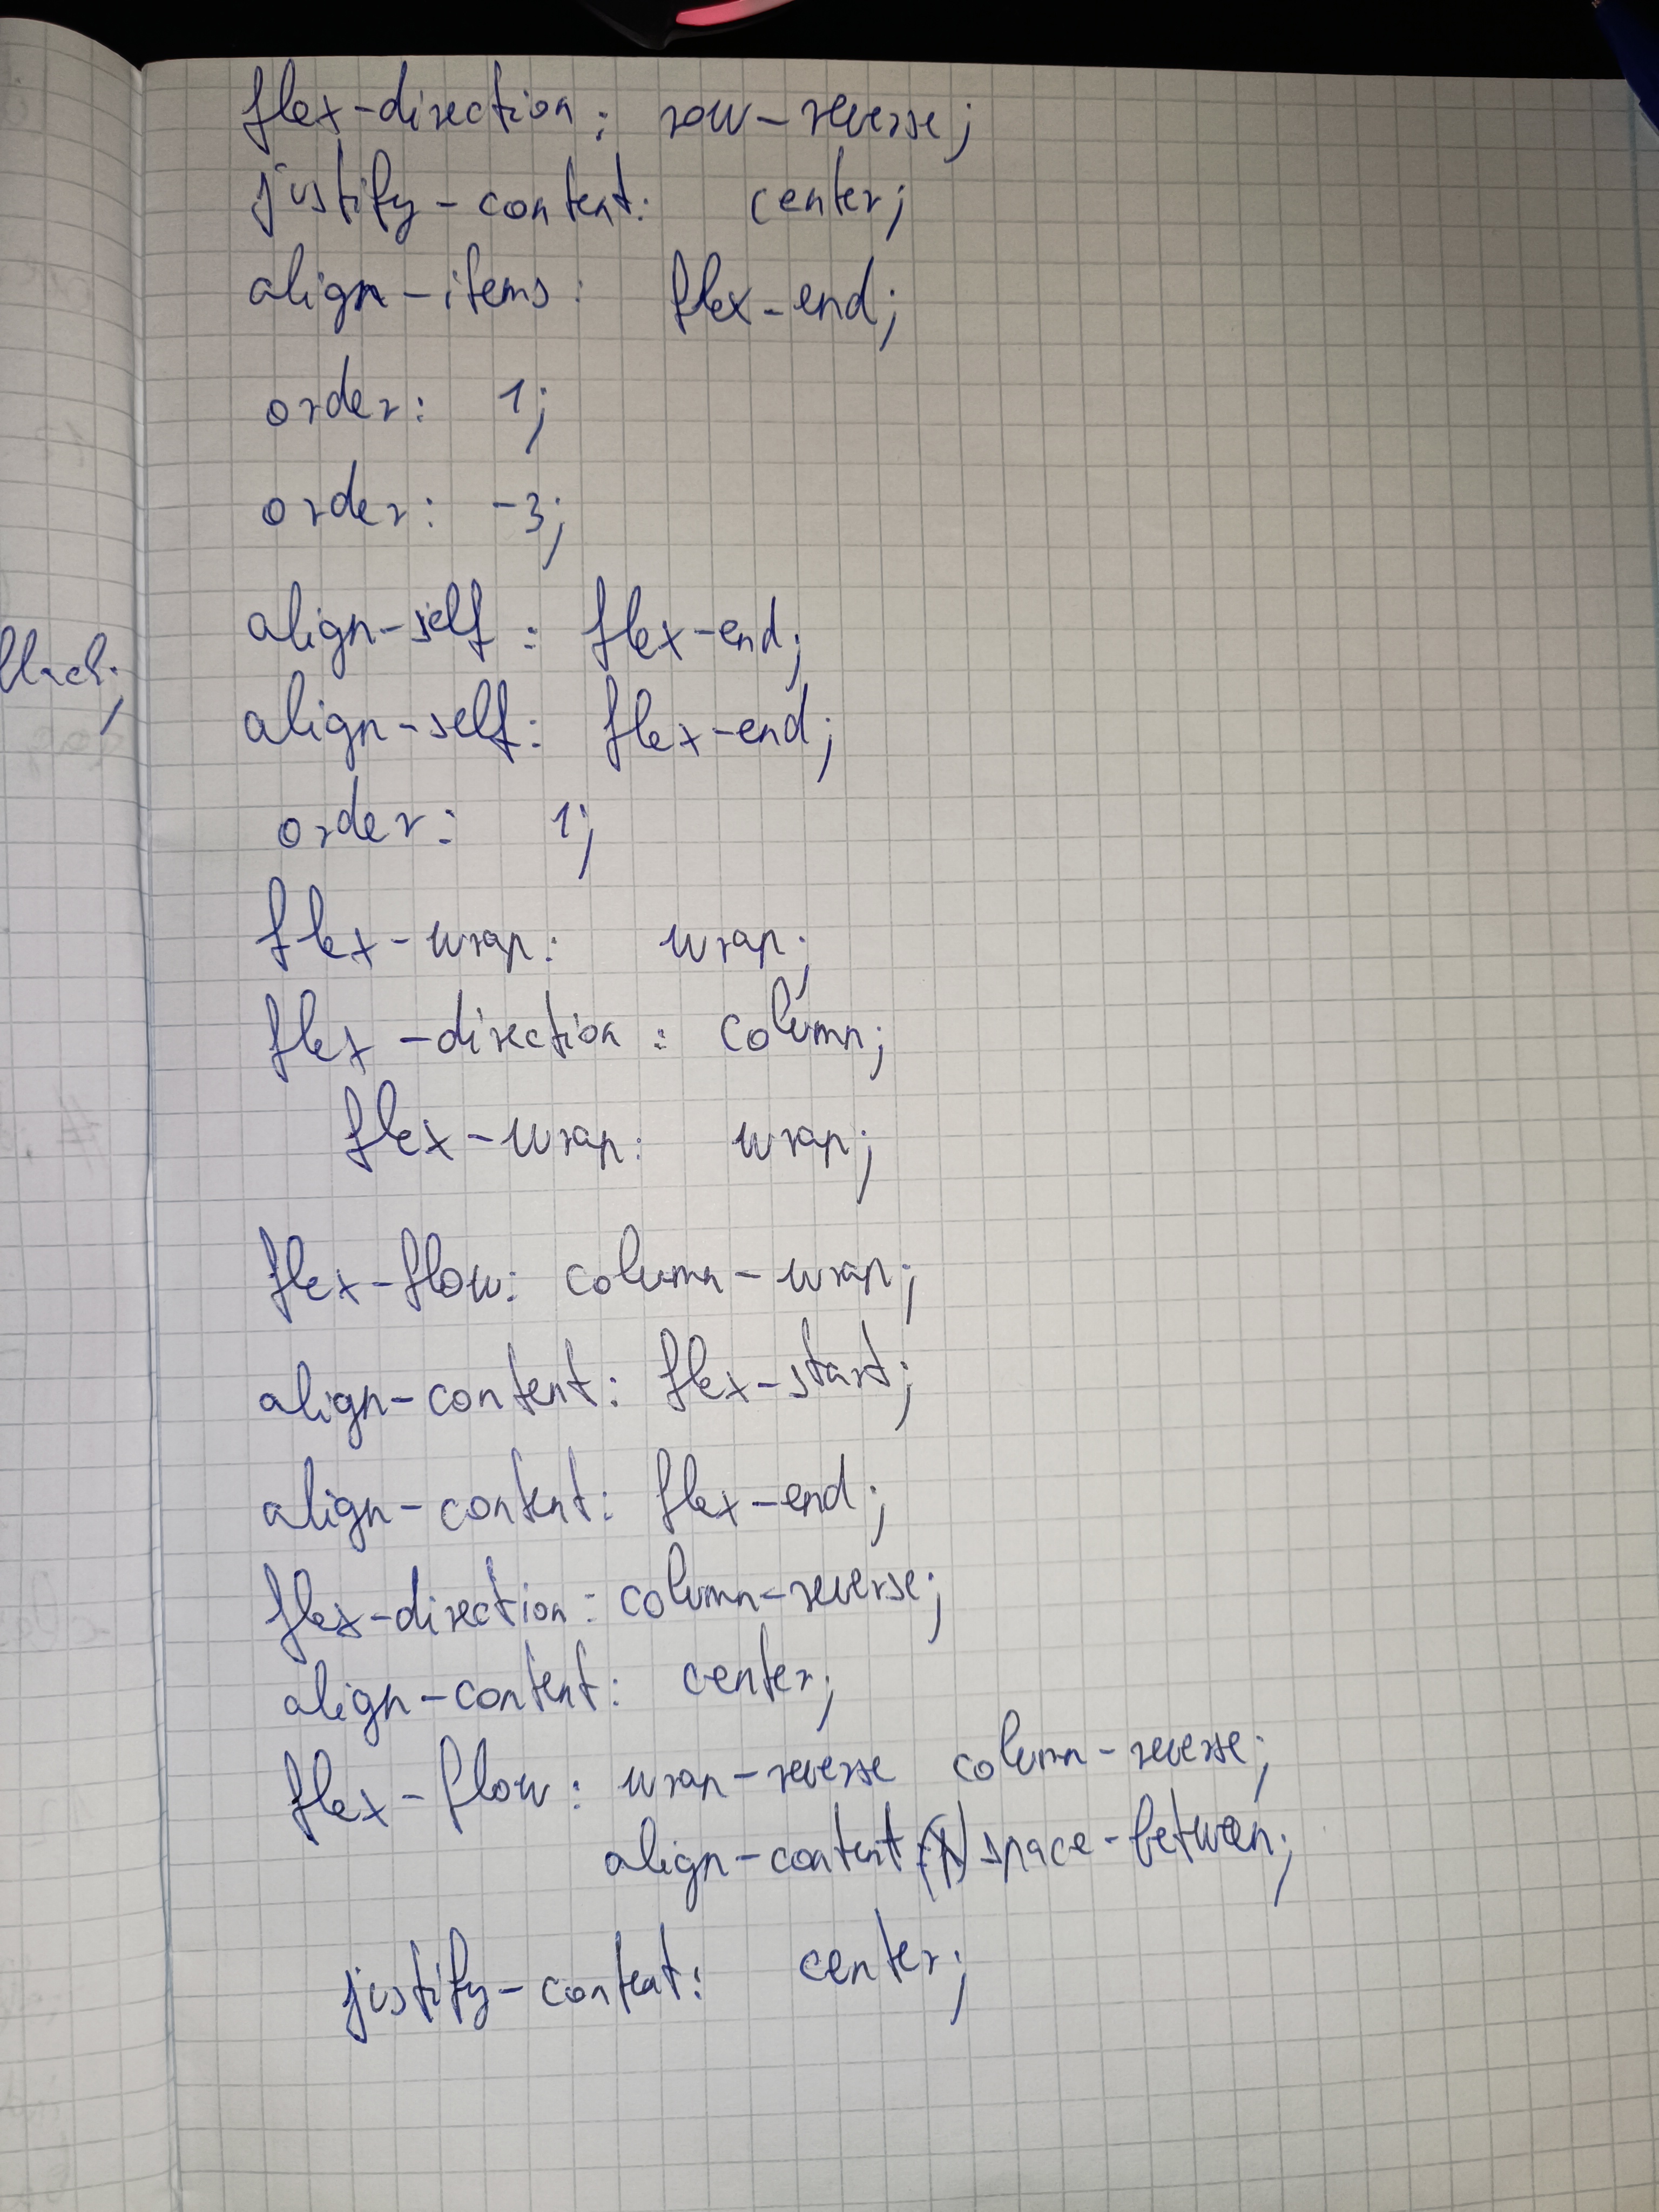 flex-direction: row-reverse;
justify-content: center;
align-items: flex-end;
order: 1;
order: -3;
align-self: flex-end;
align-self: flex-end;
order: 1;
flex-wrap: wrap;
flex-direction: column;
flex-wrap: wrap;
flex-flow: column-wrap;
align-content: flex-start;
align-content: flex-end;
flex-direction: column-reverse;
align-content: center;
flex-flow: wrap-reverse column-reverse;
align-content: space-between;
justify-content: center;